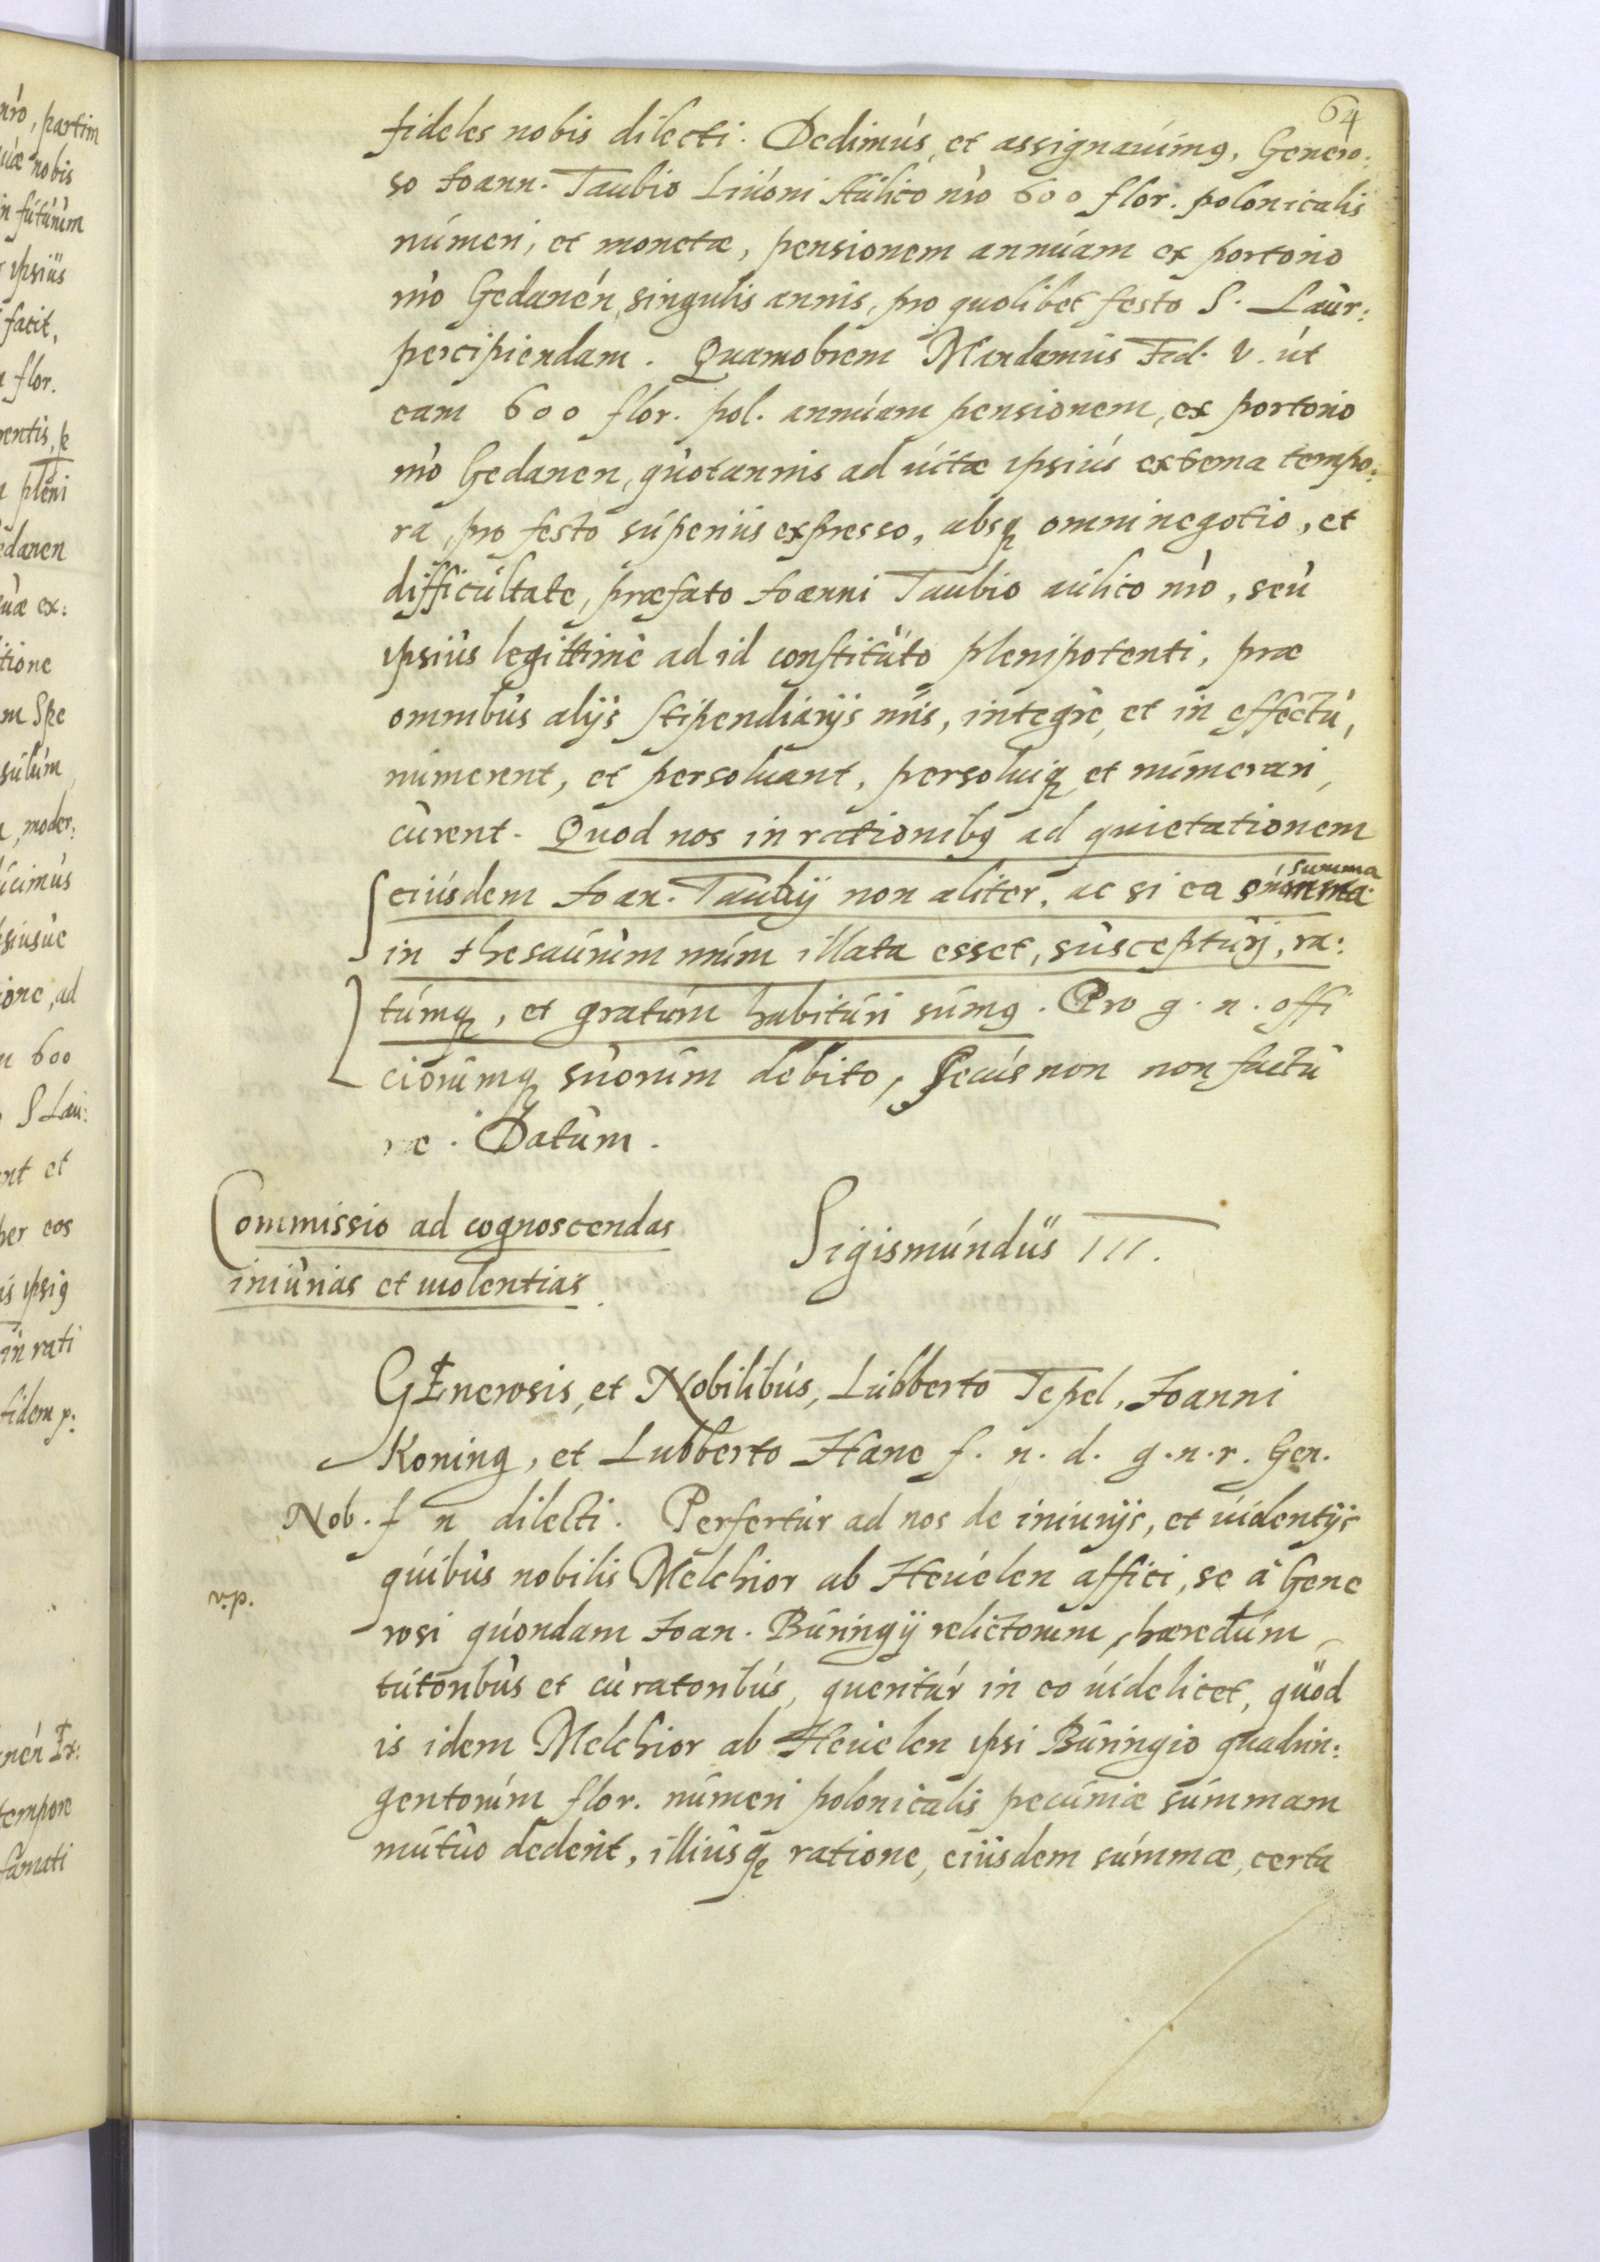 64
fideles nobis dilecti. Dedimus, et assignauimq, Genero:
so Joann. Taubio Liuoni Aulico nro 600 flor. polonicalis
numeri, et monetæ, pensionem annuam ex portorio
nro Gedanen, singulis annis, pro quolibet festo S. Laur:
percipiendam. Quamobrem Mandamus Fid. V. ut
eam 600 flor. pol. annuam pensionem, ex portorio
nro Gedanen, quotannis ad uitæ ipsius extema tempo:
ra, pro festo superius expresso, absq omni negotio, et
difficultate, præfato Joanni Taubio aulico nro, seu
ipsius legittime ad id constituto plenipotenti, præ
omnibus alijs stipendiarijs nris, integre, et in effectu,
numerent, et persoluant, persoluiq et numerari,
curent. Quod nos in rationibq ad quietationem
eiusdem Joan. Taubij non aliter, ac si ea summa
in thesaurum nrum illata esset, suscepturj, ra:
tumq, et gratum habituri sumq. Pro g. n. offi
ciorumq suorum debito, Secus non non factu
ræ. Datum.
Commissio ad cognoscendas
iniurias et uiolentias.
Sigismundus III.
GEnerosis, et Nobilibus, Lubberto Tepel, Joanni
Koning, et Lubberto Hane f. n. d. g. n. r. Gen.
Nob. f n dilecti. Perfertur ad nos de iniurijs, et uidentijs
v.p.
quibus nobilis Melchior ab Heuelen affici, se à Gene
rosi quondam Joan. Buringij relictorum, hæredum,
tutoribus et curatoribus, queritur in eo uidelicet, quod
is idem Melchior ab Heuelen ipsi Buringio quadrin:
gentorum flor. numeri polonicalis pecuniæ summam
mutuo dederit, illiusq ratione, eiusdem summæ, certa